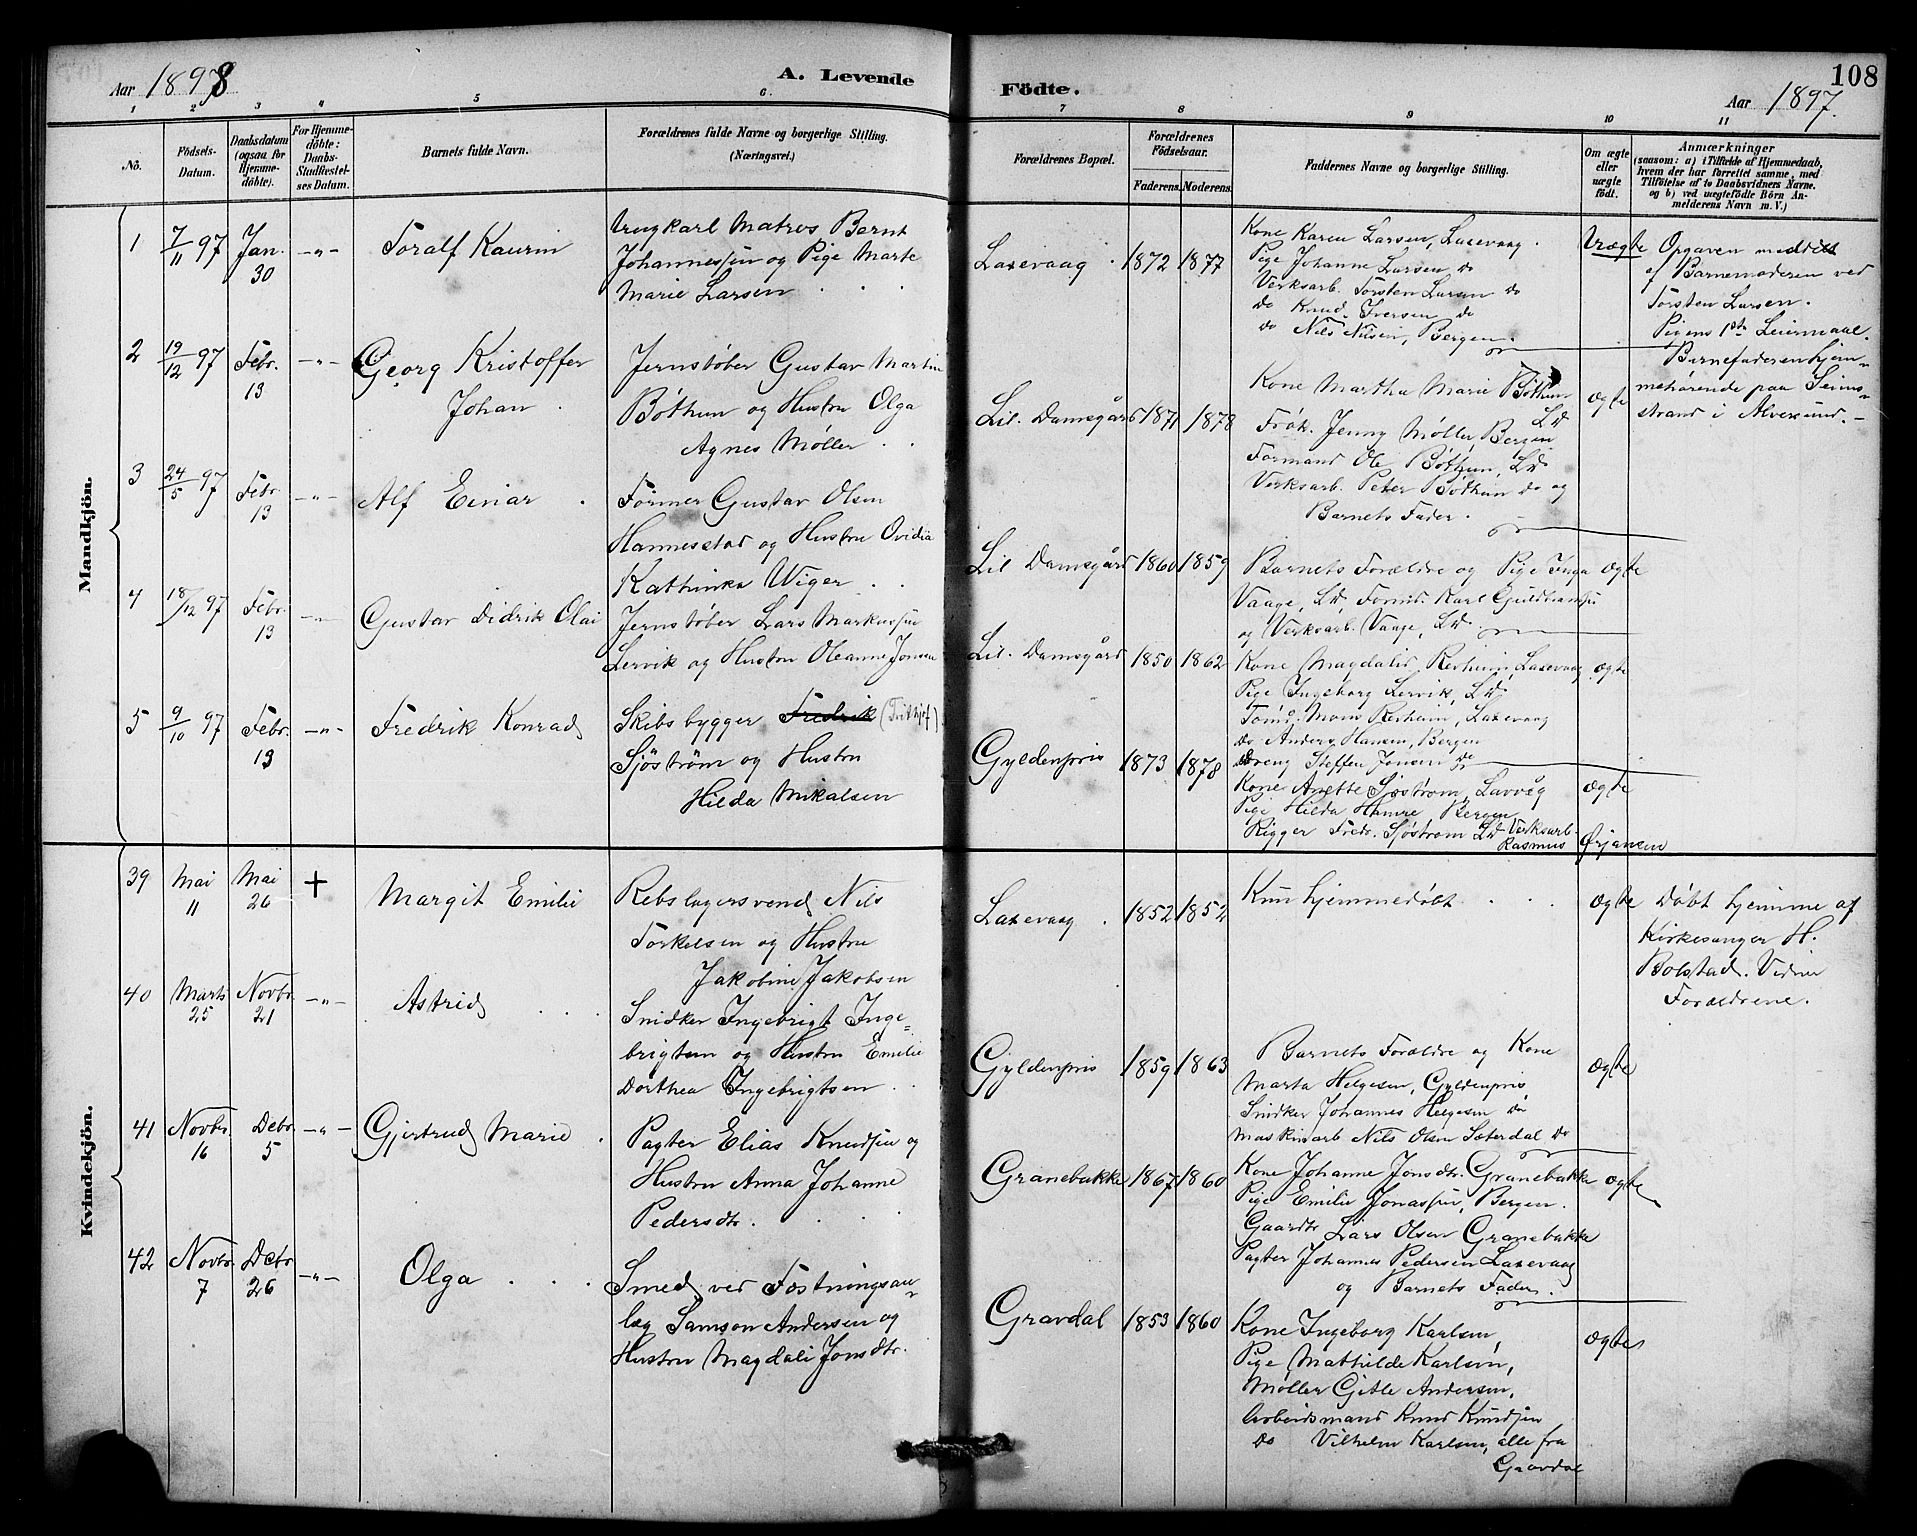 108
Aar 1898
A. Levende
Födte.
Aar 1897.
1 2 3 4 5 6 7 8 9 10 11
No.
Födsels-
Datum.
Daabsdatum
(ogsaa for
Hjemme-
döbte).
For Hjemme-
döbte:
Daabs-
Stadfæstel-
ses Datum.
Barnets fulde Navn.
Forældrenes fulde Navne og borgerlige Stilling.
(Næringsvei.)
Forældrenes Bopæl.
Forældrenes
Födselsaar.
Faderens. Moderens.
Faddernes Navne og borgerlige Stilling.
Om ægte
eller
uægte
födt.
Anmærkninger
(saasom: a) i Tilfælde af Hjemmedaab,
hvem der har forrettet samme, med
Tilföielse af to Daabsvidners Navne,
og b) ved uægtefödte Börn An-
melderens Navn m. V.)
Mandkjön.
1
7/11 97
Jan.
30
-"-
Toralf Kaurin
Ungkarl Matros Bernt
Johannessen og Pige Marte
Marie Larsen
Laxevaag
1872 1877
Kone Karen Larsen, Laxevaag.
Pige Johanne Larsen do
Verksarb. Torsten Larsen do
do Knud Iversen do
do Nils Nilsen, Bergen.
Uægte
Opgaven meddelt
af Barnemoderen ved
Torsten Larsen.
Pigens 1ste Leiermaal.
Barnefaderen hjem-
mehørende paa Seims-
strand i Alversund.-
2
19/12 97
Febr.
13
-"-
Georg Kristoffer
Johan
Jernstøber Gustav Martin
Bøthun og Hustru Olga
Agnes Møller
Lil. Damsgård
1871 1878
Kone Martha Marie Bøthun
Ld
Frøk. Jenny Møller, Bergen
Formand Ole Bøthun, Ld.
Verksarb. Peter Bøthun do og
Barnets Fader.
ægte
3
24/5 97
Febr.
13
-"-
Alf Einar
Former Gustav Olsen
Hannesstad og Hustru Ovidia
Kathinka Wiger
Lil Damsgård
1860 1859
Barnets Forældre og Pige Inga
Vaage, Ld Formd. Karl Guldbransen
og Verksarb. Vaage, Ld.
ægte
4
18/12 97
Febr.
13
-"-
Gustav Didrik Olai
Jernstøber Lars Markussen
Lervik og Hustru Oleanne Jonsen
Lil. Damsgård
1850 1862
Kone Magdalid Revheim, Laxevaag
Pige Ingeborg Lervik, Ld.
Tømd. Mons Revheim, Laxevaag
do Anders Hansen, Bergen
Dreng Steffen Jonsen do
ægte
5
9/10 97
Febr.
13
-"-
Fredrik Konrad
Skibsbygger Fredrik (Frithjof)
Sjöström og Hustru
Hilda Mikalsen
Gyldenpris
1873 1878
Kone Anette Sjöström, Laxvåg
Pige Hilda Hamre, Bergen
Rigger Fredr. Sjöström Ld Verksarb.
Rasmus Ørjansen
ægte
Kvindekjön.
39
Mai
11
Mai
26
+
Margit Emilie
Rebslagersvend Nils
Torkelsen og Hustru
Jakobine Jakobsen
Laxevaag
1852 1854
Kun hjemmedøbt
ægte
Døbt hjemme af
Kirkesanger H.
Bolstad. Vidner
Forældrene.
40
Marts
25
Novbr
21
-"-
Astrid
Snidker Ingebrigt Inge-
brigtsen og Hustru Emilie
Dorthea Ingebrigtsen
Gyldenpris
1859 1863
Barnets Forældre og Kone
Marta Helgesen, Gyldenpris,
Snidker Johannes Helgesen do
Maskinarb Nils Olsen Sæterdal do
ægte
41
Novbr.
16
Debr
5
-"-
Gjertrud Marie
Pagter Elias Knudsen og
Hustru Anna Johanne
Pedersdtr.
Granebakke
1867 1860
Kone Johanne Jonsdtr. Granebakke
Pige Emilie Jonassen, Bergen.
Gaardbr Lars Olsen Granebakke
Pagter Johannes Pedersen Laxevaag
og Barnets Fader.
ægte
42
Novbr.
7
Debr
26
-"-
Olga
Smed ved Fæstningsan-
læg Samson Andersen og
Hustru Magdali Jonsdtr.
Gravdal
1853 1860
Kone Ingeborg Karlsen,
Pige Mathilde Karlsen,
Møller Gitle Andersen,
Arbeidsmand Knud Knudsen
do Vilhelm Karlsen, alle fra
Gravdal
ægte